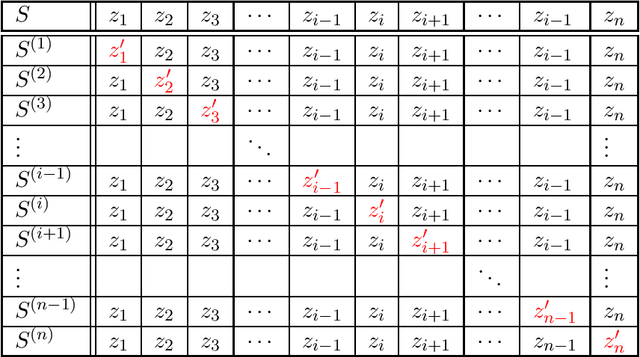 S z₁ z₂ z₃ ⋯ zᵢ₋₁ zᵢ zᵢ₊₁ ⋯ zᵢ₋₁ zₙ
S⁽¹⁾ z′₁ z₂ z₃ ⋯ zᵢ₋₁ zᵢ zᵢ₊₁ ⋯ zᵢ₋₁ zₙ
S⁽²⁾ z₁ z′₂ z₃ ⋯ zᵢ₋₁ zᵢ zᵢ₊₁ ⋯ zᵢ₋₁ zₙ
S⁽³⁾ z₁ z₂ z′₃ ⋯ zᵢ₋₁ zᵢ zᵢ₊₁ ⋯ zᵢ₋₁ zₙ
⋮ ⋱ ⋮
S⁽ⁱ⁻¹⁾ z₁ z₂ z₃ ⋯ z′ᵢ₋₁ zᵢ zᵢ₊₁ ⋯ zᵢ₋₁ zₙ
S⁽ⁱ⁾ z₁ z₂ z₃ ⋯ zᵢ₋₁ z′ᵢ zᵢ₊₁ ⋯ zᵢ₋₁ zₙ
S⁽ⁱ⁺¹⁾ z₁ z₂ z₃ ⋯ zᵢ₋₁ zᵢ z′ᵢ₊₁ ⋯ zᵢ₋₁ zₙ
⋮ ⋱ ⋮
S⁽ⁿ⁻¹⁾ z₁ z₂ z₃ ⋯ zᵢ₋₁ zᵢ zᵢ₊₁ ⋯ z′ₙ₋₁ zₙ
S⁽ⁿ⁾ z₁ z₂ z₃ ⋯ zᵢ₋₁ zᵢ zᵢ₊₁ ⋯ zₙ₋₁ z′ₙ